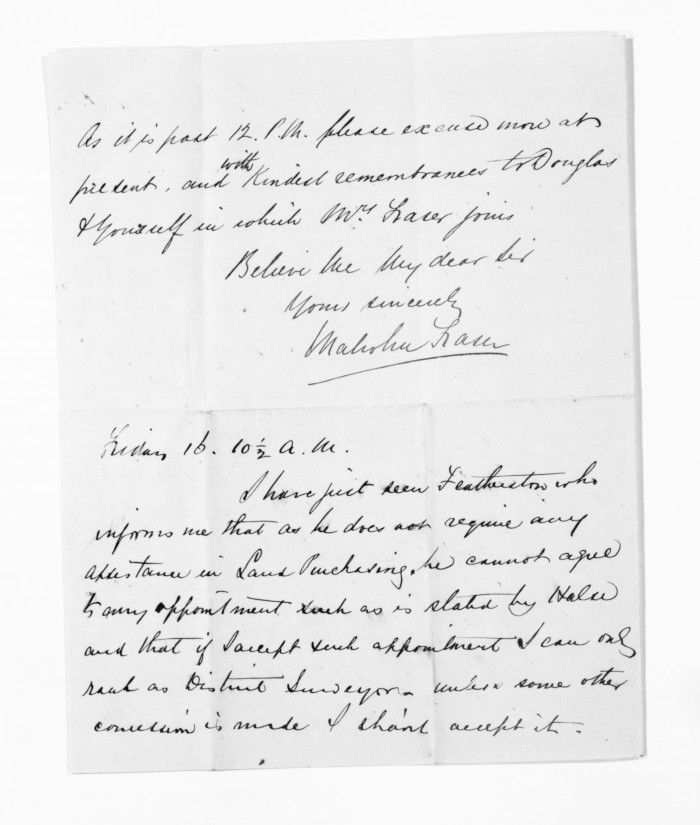 As it is past 12. P.M. please excuse more at
present, and with Kindest remembrances to Douglas
& yourself in which Mrs Fraser joins
Believe Me My dear Sir
Yours sincerely
Malcolm Fraser
Friday 16. 10½ A.M.
I have just seen Featherston who
informs me that as he does not require any
assistance in Land Purchasing, he cannot agree
to any appointment such as is stated by Halse
and that if I accept such appointment I can only
rank as District Surveyor - unless some other
concession is made I shan't accept it.